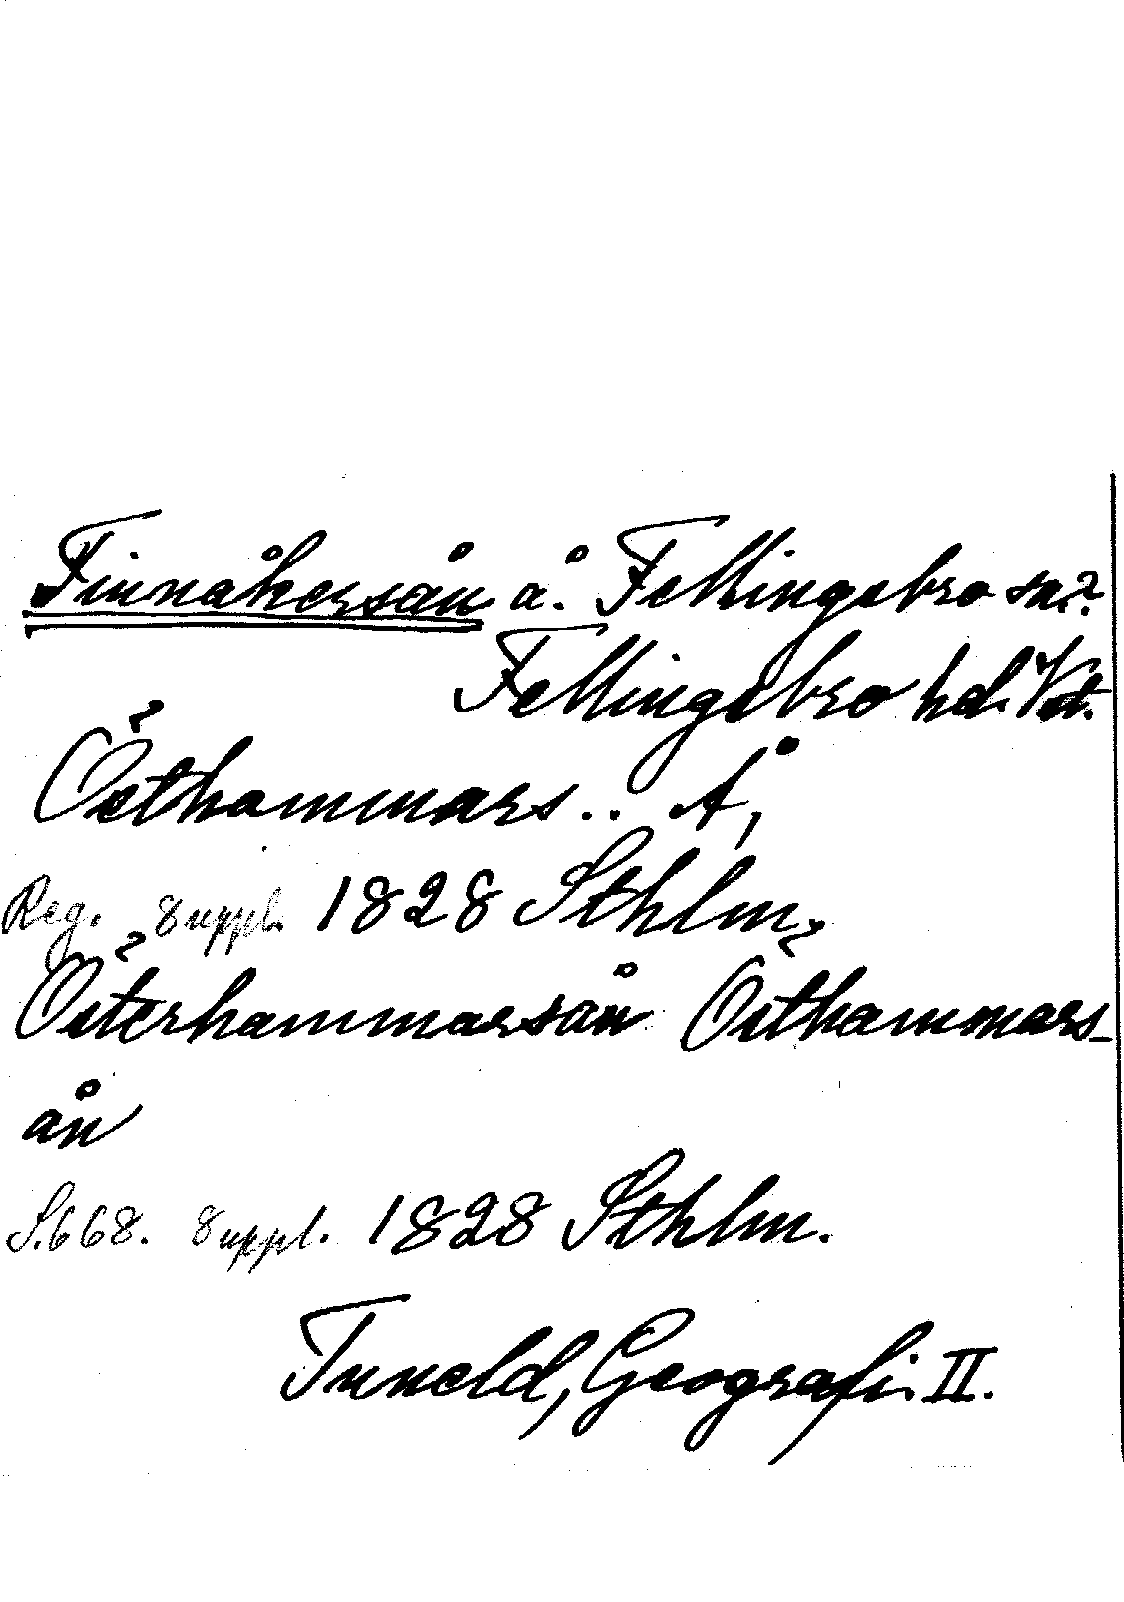 Finnåkersån å. Fellingsbro sn?
Fellingsbro hd. Vstm.
Östhammars.. Å,
Reg. Suppl. 1828 Sthlm.
Österhammarsån Östhammars-
ån
S. 668. Suppl. 1828 Sthlm.
Tuneld, Geografi II.